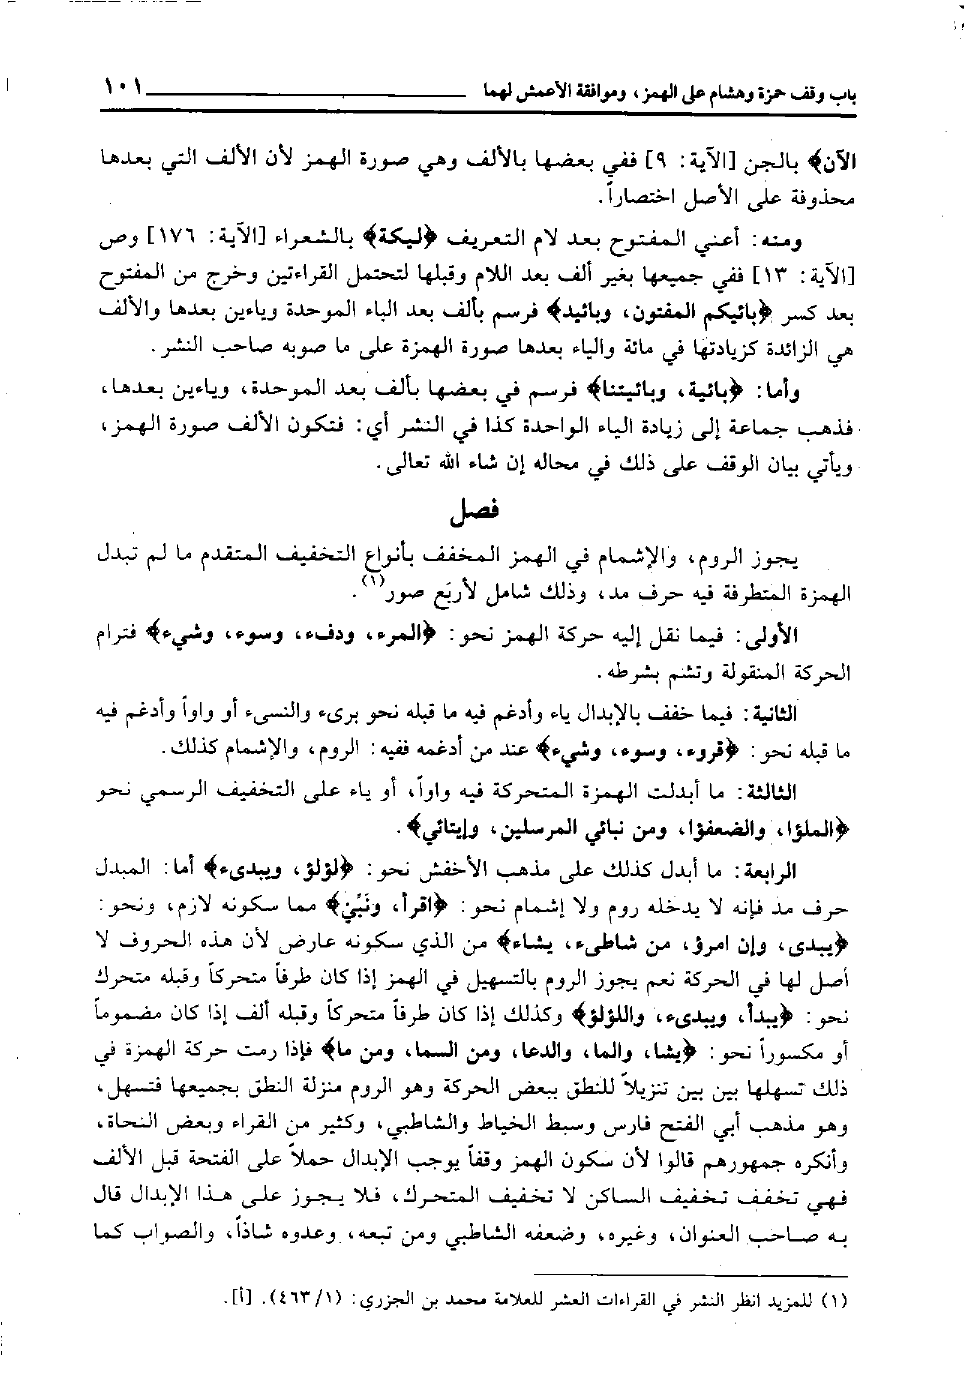 باب وقف حمزة وهشام على الهمز، وموافقة الأعمش لهما ١٠١
الآن﴾ بالجن [الآية: ٩] ففي بعضها بالألف وهي صورة الهمز لأن الألف التي بعدها
محذوفة على الأصل اختصاراً.
ومنه: أعني المفتوح بعد لام التعريف ﴿ليكة﴾ بالشعراء [الآية: ١٧٦] وص
[الآية: ١٣] ففي جميعها بغير ألف بعد اللام وقبلها لتحتمل القراءتين وخرج من المفتوح
بعد كسر ﴿بائيكم المفتون، وبائيد﴾ فرسم بألف بعد الباء الموحدة وياءين بعدها والألف
هي الزائدة كزيادتها في مائة والياء بعدها صورة الهمزة على ما صوبه صاحب النشر.
وأما: ﴿بائية، وبائيتنا﴾ فرسم في بعضها بألف بعد الموحدة، وياءين بعدها،
فذهب جماعة إلى زيادة الياء الواحدة كذا في النشر أي: فتكون الألف صورة الهمز،
ويأتي بيان الوقف على ذلك في محاله إن شاء الله تعالى.
فصل
يجوز الروم، والإشمام في الهمز المخفف بأنواع التخفيف المتقدم ما لم تبدل
الهمزة المتطرفة فيه حرف مد، وذلك شامل لأربَع صور(١).
الأولى: فيما نقل إليه حركة الهمز نحو: ﴿المرء، ودفء، وسوء، وشيء﴾ فترام
الحركة المنقولة وتشم بشرطه.
الثانية: فيما خفف بالإبدال ياء وأدغم فيه ما قبله نحو برىء والنسىء أو واواً وأدغم فيه
ما قبله نحو: ﴿قروء، وسوء، وشيء﴾ عند من أدغمه ففيه: الروم، والإشمام كذلك.
الثالثة: ما أبدلت الهمزة المتحركة فيه واواً، أو ياء على التخفيف الرسمي نحو
﴿الملؤا، والضعفؤا، ومن نبائي المرسلين، وإيتائي﴾.
الرابعة: ما أبدل كذلك على مذهب الأخفش نحو: ﴿لؤلؤ، ويبدىء﴾ أما: المبدل
حرف مد فإنه لا يدخله روم ولا إشمام نحو: ﴿اقرأ، ونَبِّئ﴾ مما سكونه لازم، ونحو:
﴿يبدى، وإن امرؤ، من شاطىء، يشاء﴾ من الذي سكونه عارض لأن هذه الحروف لا
أصل لها في الحركة نعم يجوز الروم بالتسهيل في الهمز إذا كان طرفاً متحركاً وقبله متحرك
نحو: ﴿يبدأ، ويبدىء، واللؤلؤ﴾ وكذلك إذا كان طرفاً متحركاً وقبله ألف إذا كان مضموماً
أو مكسوراً نحو: ﴿يشا، والما، والدعا، ومن السما، ومن ما﴾ فإذا رمت حركة الهمزة في
ذلك تسهلها بين بين تنزيلاً للنطق ببعض الحركة وهو الروم منزلة النطق بجميعها فتسهل،
وهو مذهب أبي الفتح فارس وسبط الخياط والشاطبي، وكثير من القراء وبعض النحاة،
وأنكره جمهورهم قالوا لأن سكون الهمز وقفاً يوجب الإبدال حملاً على الفتحة قبل الألف
فهي تخفف تخفيف الساكن لا تخفيف المتحرك، فلا يجوز على هذا الإبدال قال
به صاحب العنوان، وغيره، وضعفه الشاطبي ومن تبعه، وعدوه شاذاً، والصواب كما
(١) للمزيد انظر النشر في القراءات العشر للعلامة محمد بن الجزري: (٤٦٣/١). [أ].